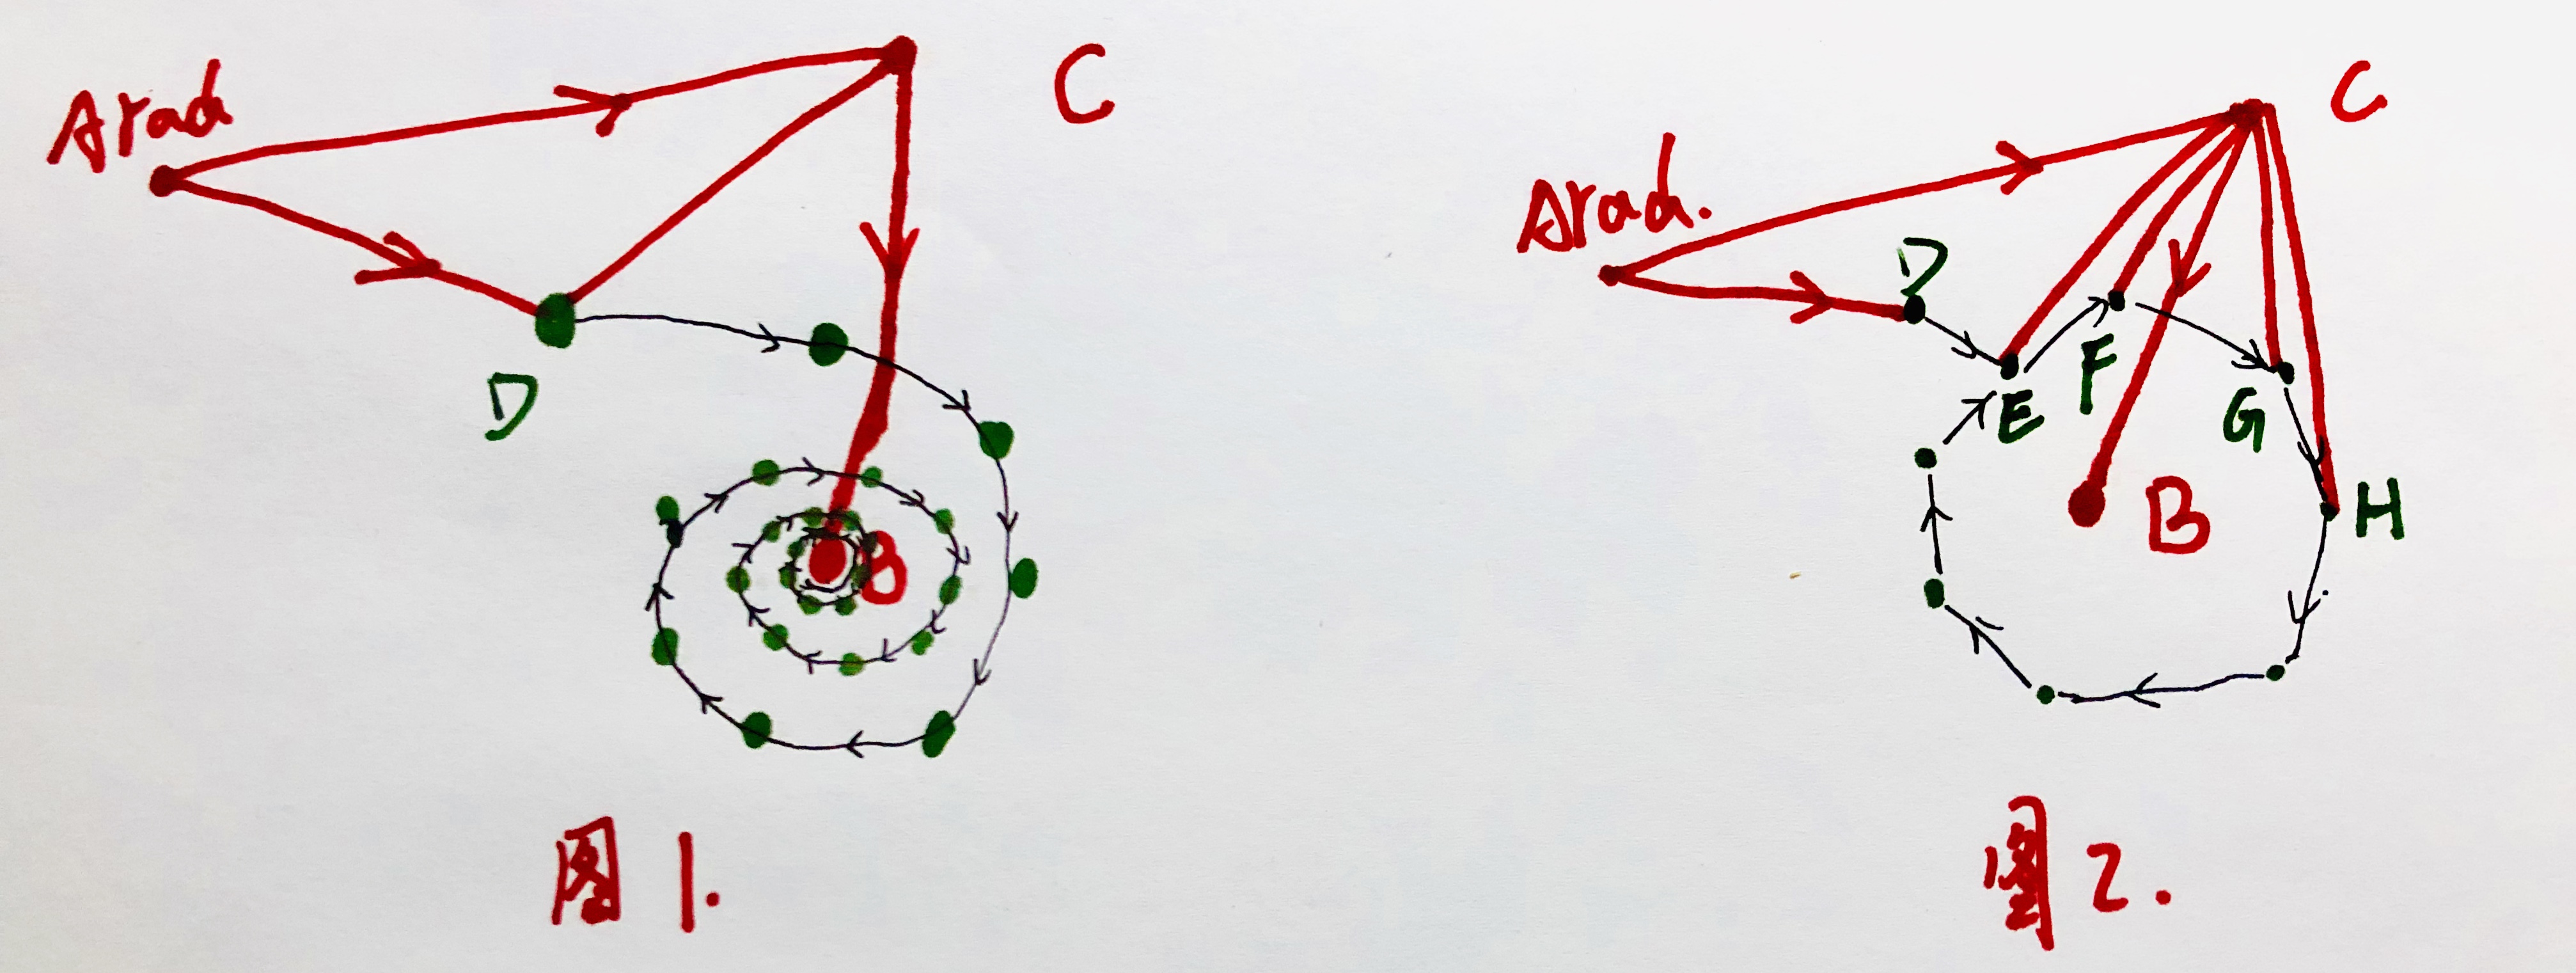 Arad
C
D
B
图1.
Arad.
C
D
E
F
G
H
B
图2.